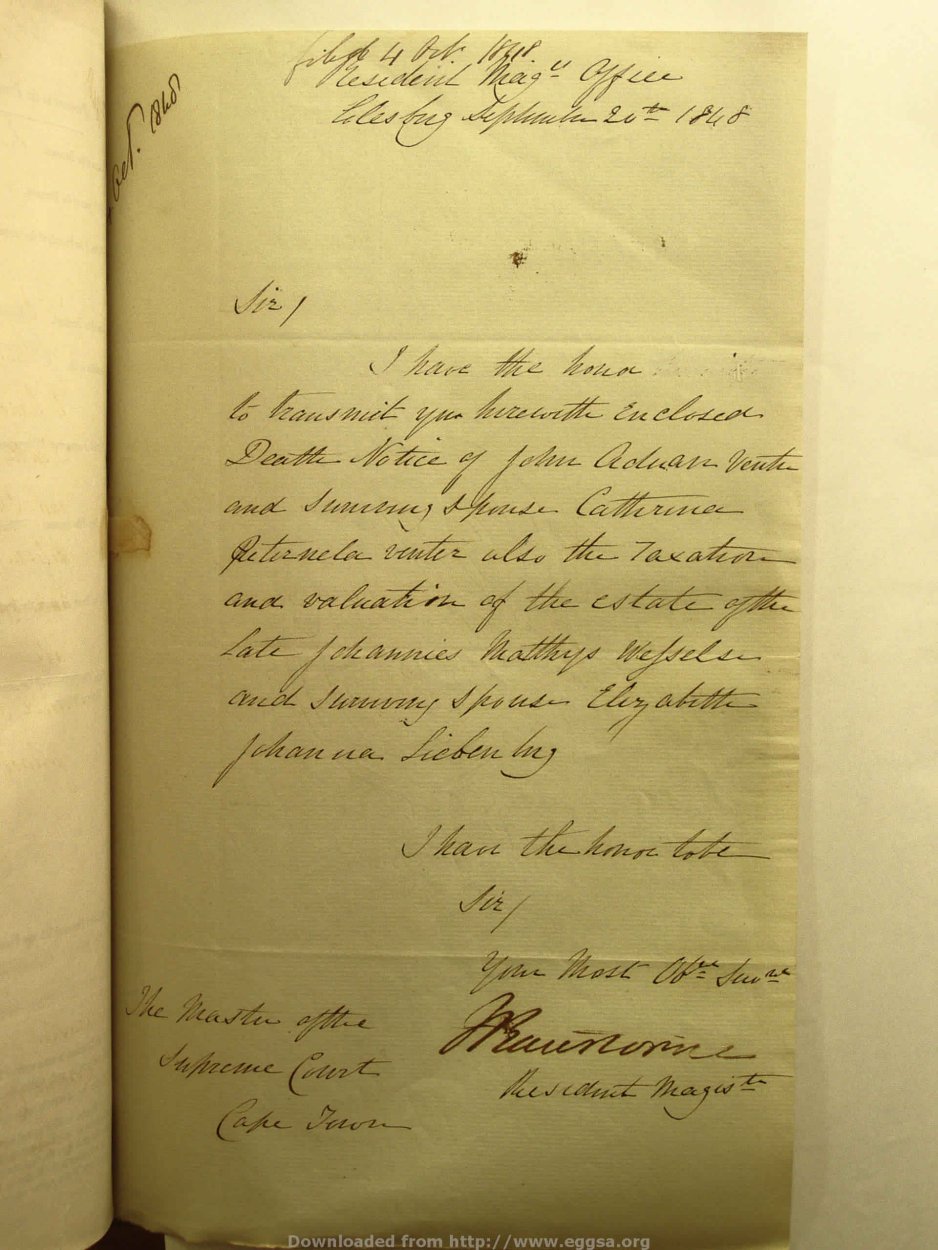 filed 4 Oct. 1848.
Resident Mag^s Office
Colesberg September 20th 1848
Oct. 1848
Sir/
I have the honor
to transmit you herewith Enclosed
Death Notice of John Adrian Venter
and surviving spouse Catherina
Peternela venter also the Taxation
and valuation of the estate of the
Late Johannies Matthys Wesselse
and surviving spouse Elizabeth
Johanna Liebenberg
I have the honor to be
Sir/
Your Most Obt Servt
Rawstorne
Resident Magiste
The Master of the
Supreme Court
Cape Town
Downloaded from http://www.eggsa.org